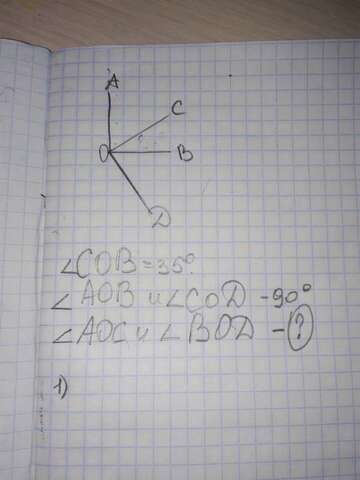 A
C
O
B
D
∠COB=35°.
∠AOB и ∠COD -90°
∠AOC и ∠BOD -?
1)